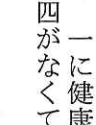 一に健康
四がなくて